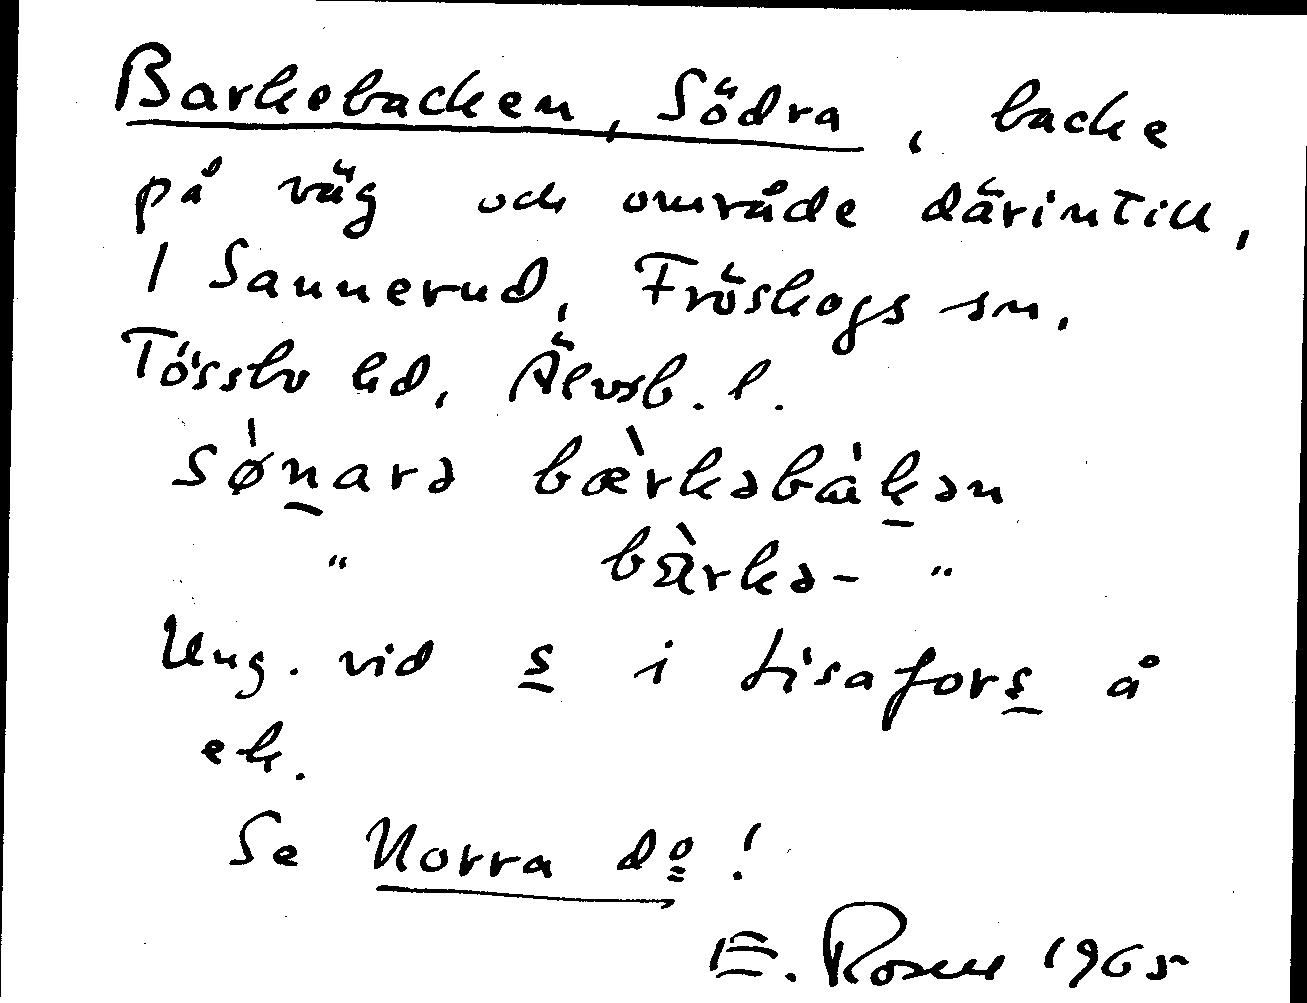 Barkebacken, Södra, backe
på väg och område därintill,
i Sannerud, Fröskogs sn,
Tössbo hd, Älvsb. l.
sø̀narə bæ̀rkəbàkən
" bàrkə- "
Ung. vid s i Lisafors å
ek.
Se Norra do!
E. Rosell 1965